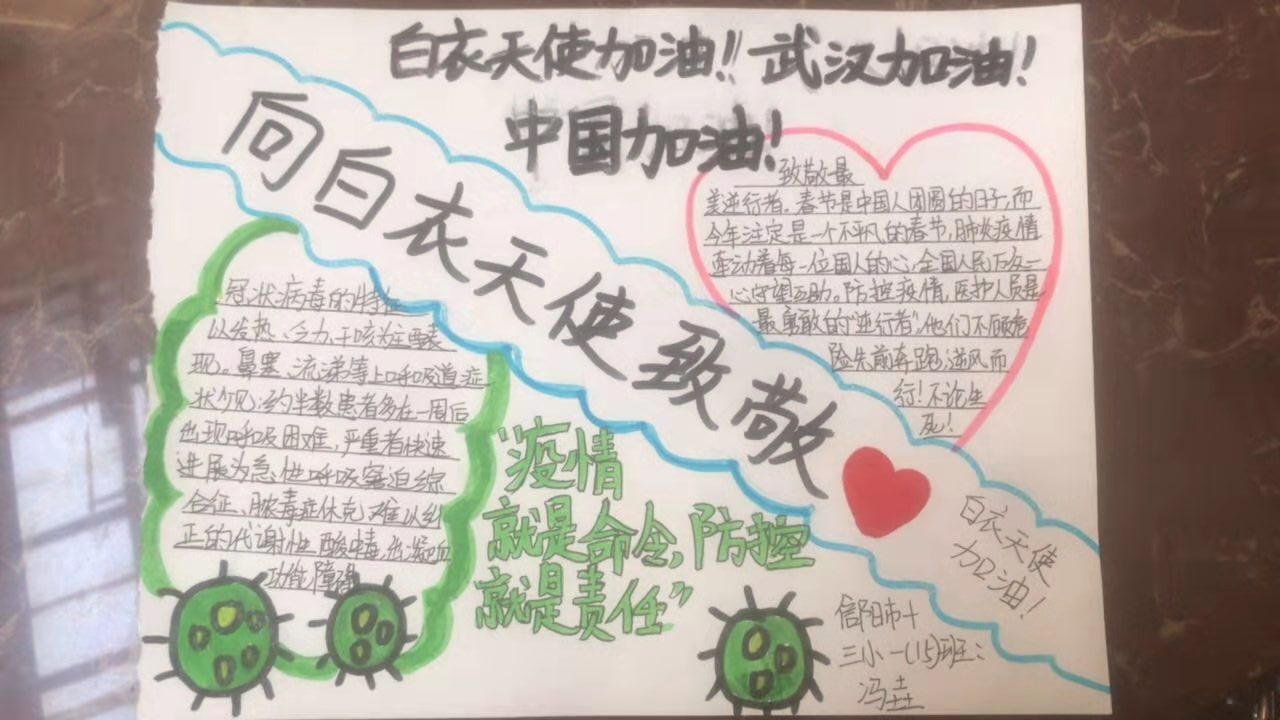 白衣天使加油!! 武汉加油!
中国加油!
向白衣天使致敬
致敬最
美逆行者。春节是中国人团圆的日子,而
今年注定是一个不平凡的春节,肺炎疫情
牵动着每一位国人的心,全国人民万众一
心守望互助。防控疫情,医护人员是
最勇敢的"逆行者",他们不顾危
险先前奔跑,逆风而
行!不论生
死!
冠状病毒的特征
以发热、乏力、干咳为主要表
现。鼻塞、流涕等上呼吸道症
状少见;约半数患者多在一周后
出现呼吸困难,严重者快速
进展为急性呼吸窘迫综
合征、脓毒症休克,难以纠
正的代谢性酸中毒,出凝血
功能障碍
"疫情
就是命令,防控
就是责任"
白衣天使
加油!
信阳市十
三小一(15)班:
冯垚